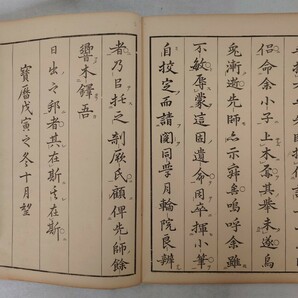 侶命余小子上木蚤其舉未遂烏
兎漸逝先師亦示寂嗚呼余雖
不敏辱蒙這固遺命用卒揮小筆
自挍定而請閱同學月輪院良辨
者乃以托之剞厥氏顧俾先師餘
響木鐸吾
日出之邦者其在斯夫在斯
寶曆戊寅之冬十月望